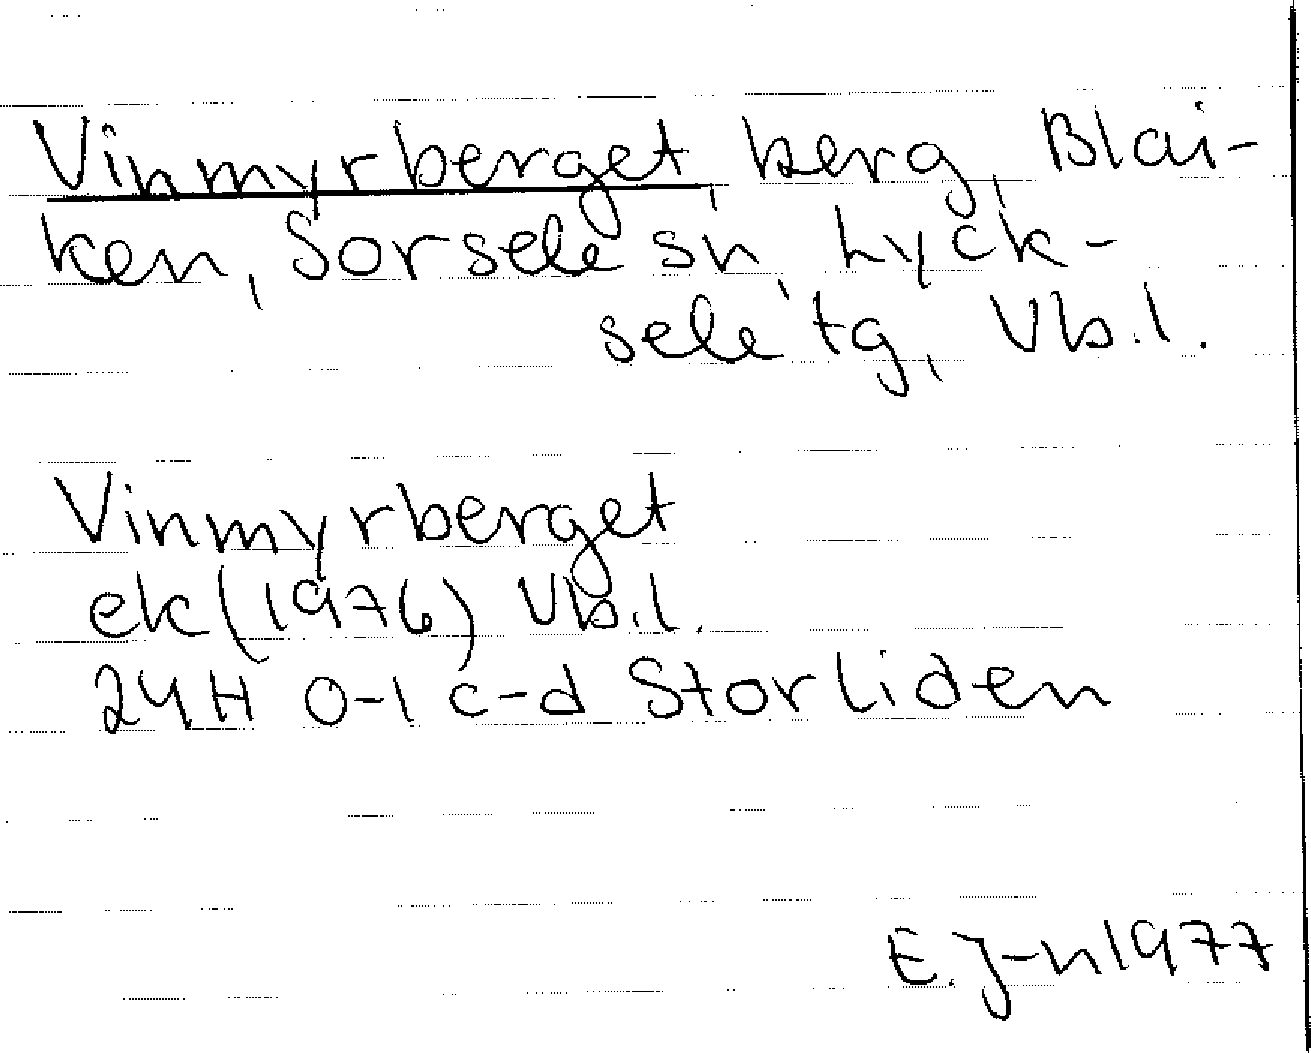 Vinmyrberget, berg, Blai-
ken, Sorsele sn, Lyck-
sele tg, Vb.l.
Vinmyrberget
ek (1976) Vb.l.
24H 0-1 c-d Storliden
E. J-n 1977